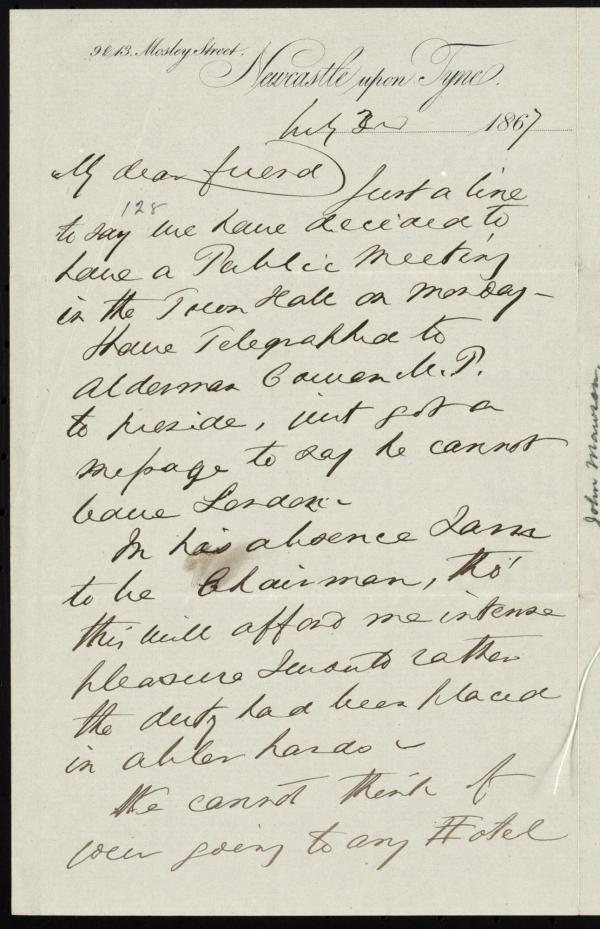 9 & 13. Mosley Street.
Newcastle upon Tyne.
July 3rd 1867
My dear friend
Just a line
128
to say we have decided to
have a Public Meeting
in the Town Hall on Monday –
I have Telegraphed to
Alderman Cowen M.P.
to preside, just got a
message to say he cannot
leave London –
In his absence I am
to be Chairman, tho'
this will afford me intense
pleasure I would rather
the duty had been placed
in abler hands –
We cannot think of
your going to any Hotel
John Mawson